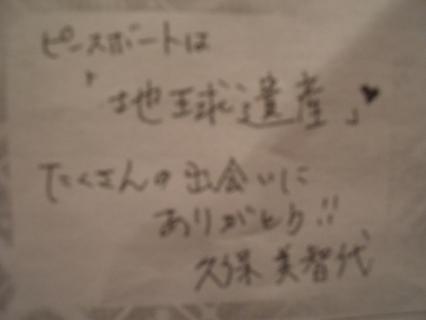 ピースボートは
「地球遺産」♥
たくさんの出会いに
ありがとう!!
久保美智代